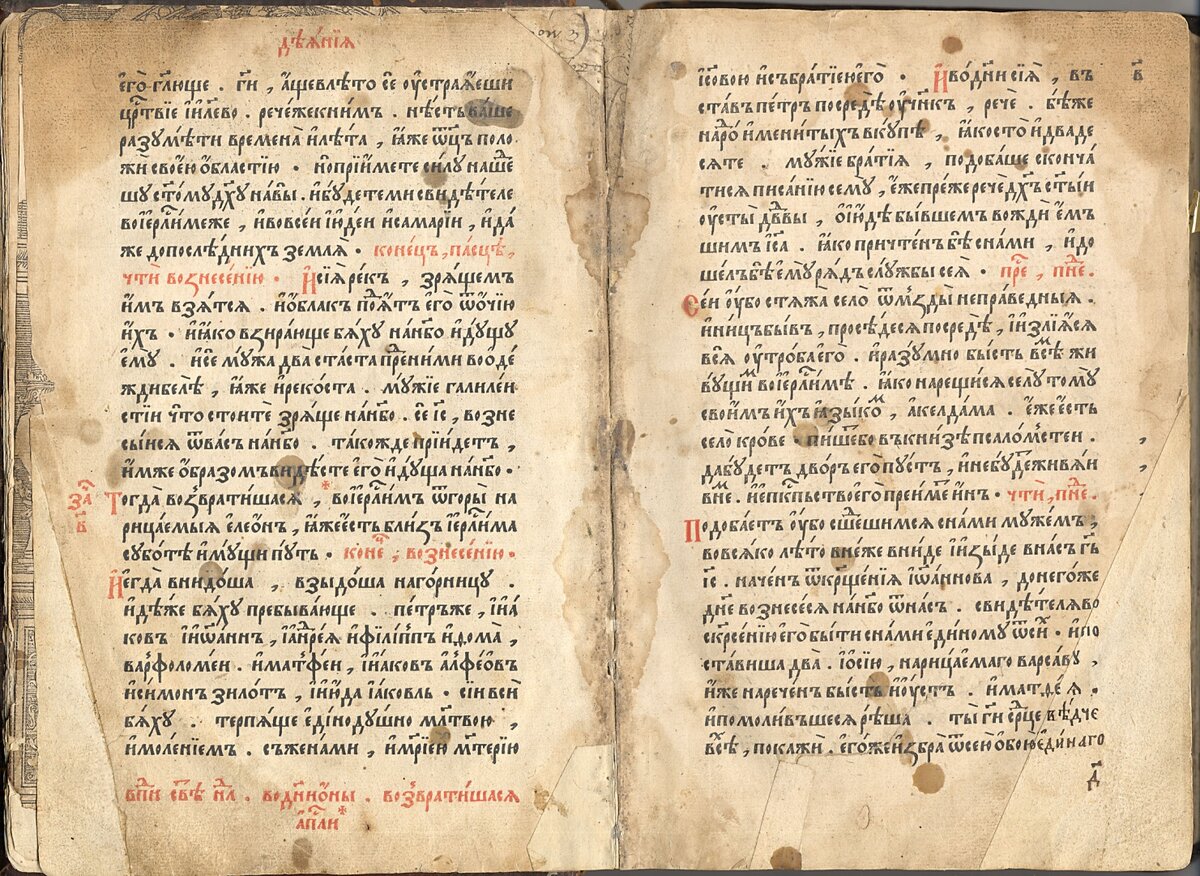 дѣꙗ҆нїꙗ
є҆го̀ гл҃юще . гд҃и , а҆ще в лѣто се оу҆страꙗ҆еши
црⷭ҇твїе і҆и҃лево . рече же к ним . нѣсть ваше
разꙋмѣти времена и҆ лѣта , ꙗ҆же ѿц҃ъ поло
жи своею ѻ҆бластїю · но прїи҆мете силꙋ наше
шꙋ ст҃омꙋ дх҃ꙋ на вы . и҆ бꙋдете ми свидѣтеле
во і҆ерⷭ҇лимеже , и҆ во всеи і҆ю҆деи и҆ самарїи , и҆ да
же до послѣдних земля · конецъ , пасцѣ ,
чти вознесенїю · И҆ сїꙗ рек , зрящем
и҆м взятся . и҆ ѻ҆блак подꙗт є҆го ѿ ѻ҆чїю
и҆х · и҆ ꙗ҆ко взирающе бяхꙋ на нб҃о и҆дꙋщꙋ
є҆мꙋ . и҆ се мꙋжа два стаста пред ними во ѻ҆де
жди бѣлѣ , ꙗ҆же и҆ рекоста . мꙋжїе галилеи
стїи что стоите зряще на нб҃о . се і҆с , возне
сыися ѿ вас на нб҃о . такожде прїидетъ ,
и҆мже ѻ҆бразомъ видѣсте є҆го и҆дꙋща на нб҃о ·
заⷱ҇ в҃
Тогда возвратишася , во і҆ерⷭ҇лим ѿ горы на
рицаемыꙗ є҆леѻ҆н , ꙗ҆же є҆сть близ і҆ерⷭ҇лима
сꙋботѣ и҆мꙋщи пꙋть · конеⷰ҇ , вознесенїю ·
И҆ егда внидоша , взыдоша на горницꙋ .
и҆дѣже бяхꙋ пребывающе . петръ же , і҆ и҆а
ков і҆ и҆ѡанн , і҆ а҆ндреꙗ и҆ филипп и҆ дома ,
варфоломеи . и҆ матфеи , і҆ и҆аков а҆лфеовъ
и҆ симон зилот , і҆ и҆юда і҆аковль · сїи вси
бяхꙋ . терпяще є҆динодꙋшно млт҃вою ,
и҆ моленїем . съ женами , и҆ мр҃їею мт҃ерїю
впⷣи свⷮѣ нⷣл . во дни ѻ҆ны . возвратишася
а҆пⷭ҇ли
в҃
і҆с҃овою и҆ съ братїею є҆го · И҆ во дни сїꙗ , въ
став петр посредѣ оу҆чн҃к , рече . бѣ же
нароⷣ и҆менитых вкꙋпѣ , ꙗ҆ко сто и҆ дваде
сяте . мꙋжїе братїꙗ , подобаше сконча
тися писанїю семꙋ , є҆же преже рече дх҃ъ ст҃ыи
оу҆сты дв҃двы , ѻ҆ і҆юдѣ бывшем вожди є҆м
шим і҆с҃а . ꙗ҆ко причтен бѣ с нами , и҆ до
шелъ бѣ є҆мꙋ рядъ слꙋжбы сеꙗ · преⷭ҇ , пнⷣе .
Сеи оу҆бо стяжа село ѿ мзды неправедныꙗ .
и҆ ниц бывъ , просѣдеся посредѣ , і҆ излїꙗся
всꙗ оу҆троба є҆го . и҆ разꙋмно бысть всѣм жи
вꙋщим во і҆ерⷭ҇лимѣ . ꙗ҆ко нарещися селꙋ томꙋ
своим и҆х ꙗзыком , а҆келдама . є҆же є҆сть
село крове · пишет бо в книзѣ псаломстеи .
да бꙋдетъ двор є҆го пꙋст , и҆ не бꙋдет живꙗи
в не . и҆ є҆пⷭ҇кпьство є҆го преимет и҆н · чти , пнⷣе .
Подобает оу҆бо сшедшимся с нами мꙋжем ,
во всяко лѣто в неже вниде і҆ изыде в нас гд҃ь
і҆с҃ . начен ѿ крⷭ҇щенїꙗ і҆ѡаннова , до негоже
дн҃е вознесеся на нб҃о ѿ нас . свидѣтелꙗ во
скрⷭ҇сенїю є҆го быти с нами є҆диномꙋ ѿ сих · и҆ по
ставиша два . і҆ѻ҆сїю , нарицаемаго варсавꙋ ,
и҆же наречен бысть и҆ꙋст . и҆ матѳеꙗ .
и҆ помоливъшеся рѣша . ты гд҃и срⷣце вѣдче
всѣⷯ , покажи . є҆гоже и҆збра ѿ сею ѻ҆бою є҆динаго
д҃